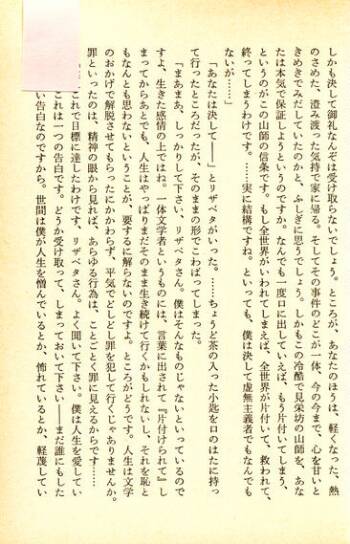 しかも決して御礼なんぞは受け取らないでしょう。ところが、あなたのほうは、軽くなった、熱
のさめた、澄み渡った気持で家に帰る。そしてその事件のどこが一体、今の今まで、心を甘いと
きめきでみだしていたのかと、ふしぎに思うでしょう。しかもこの冷酷で見栄坊の山師を、あな
たは本気で保証しようというのですか。なんでも一度口に出していえば、もう片付いてしまう、
というのがこの山師の信条です。もし全世界がいわれてしまえば、全世界が片付いて、救われて、
終ってしまうわけです。……実に結構ですね。といっても、僕は決して虚無主義者でもなんでも
ないが……」
「あなたは決して――」とリザベタがいった。……ちょうど茶の入った小匙を口のはたに持っ
て行ったところだったが、そのままの形でこわばってしまった。
「まあまあ、しっかりして下さい、リザベタさん。僕はそんなものじゃないといっているので
すよ、生きた感情の上ではね。一体文学者というものには、言葉に出されて『片付けられて』し
まってからあとでも、人生はやっぱりまだそのまま生き続けて行くかもしれないし、それを恥と
もなんとも思わないということが、要するに解らないのですよ。ところがどうです。人生は文学
のおかげで解脱させてもらったにかかわらず、平気でどしどし罪を犯して行くじゃありませんか。
罪といったのは、精神の眼から見れば、あらゆる行為は、ことごとく罪に見えるからです……
これで目標に達したわけです、リザベタさん。よく聞いて下さい。僕は人生を愛してい
これは一つの告白です。どうか受け取って、しまっておいて下さい――まだ誰にもした
い告白なのですから。世間は僕が人生を憎んでいるとか、怖れているとか、軽蔑してい